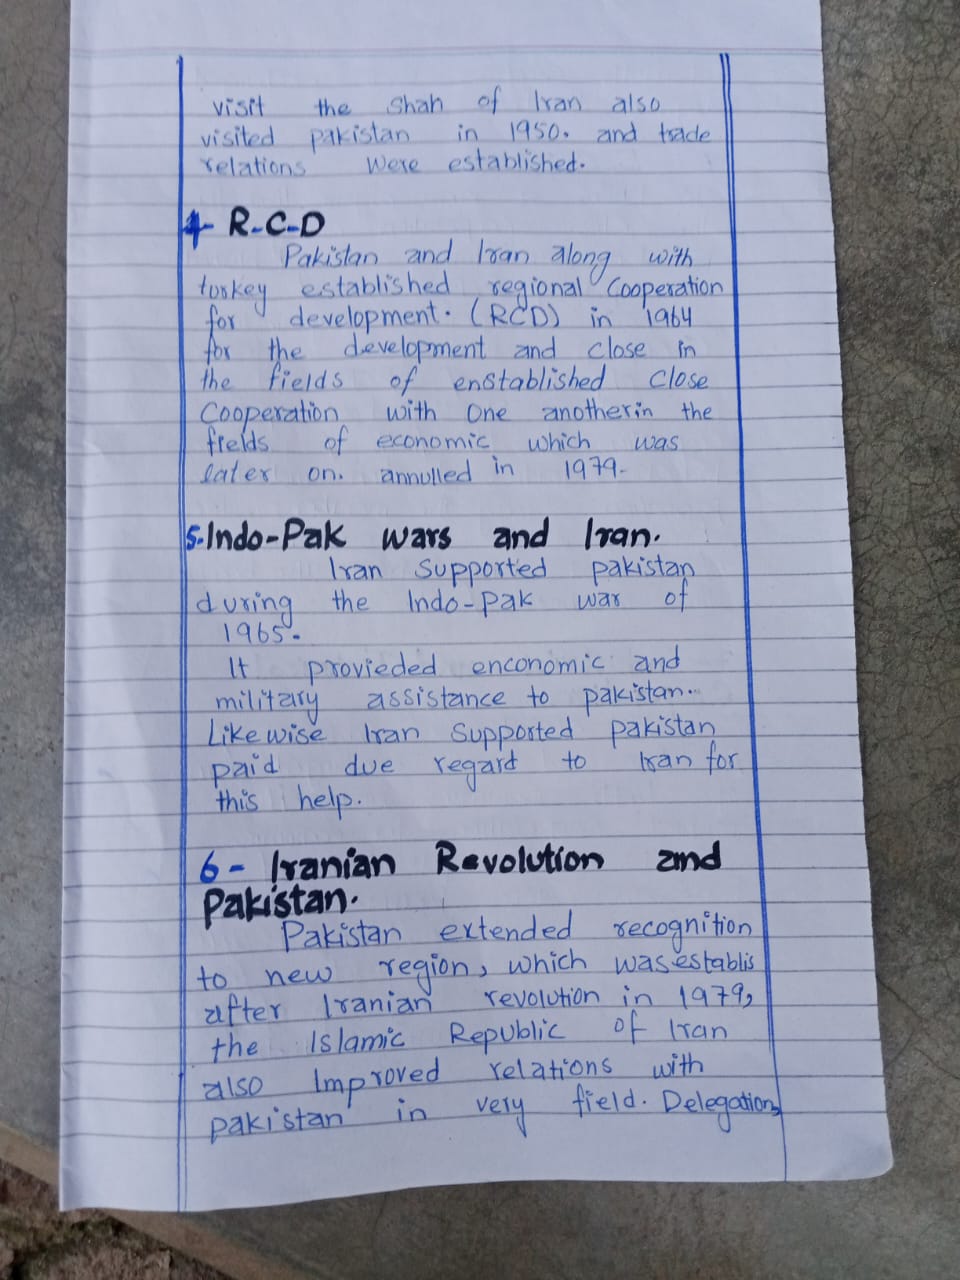 visit the Shah of Iran also
visited pakistan in 1950. and trade
relations were established.
4- R-C-D
Pakistan and Iran along with
turkey established regional Cooperation
for development. (RCD) in 1964
for the development and close in
the fields of enstablished close
Cooperation with one anotherin the
fields of economic which was
later on. annulled in 1979-
5-Indo-Pak wars and Iran.
Iran supported pakistan
during the Indo-pak war of
1965.
It provieded enconomic and
military assistance to pakistan..
Likewise Iran supported pakistan
paid due regard to Iran for
this help.
6- Iranian Revolution and
Pakistan.
Pakistan extended recognition
to new region, which was establis
after Iranian revolution in 1979,
the Islamic Republic of Iran
also Improved relations with
pakistan in very field. Delegation,